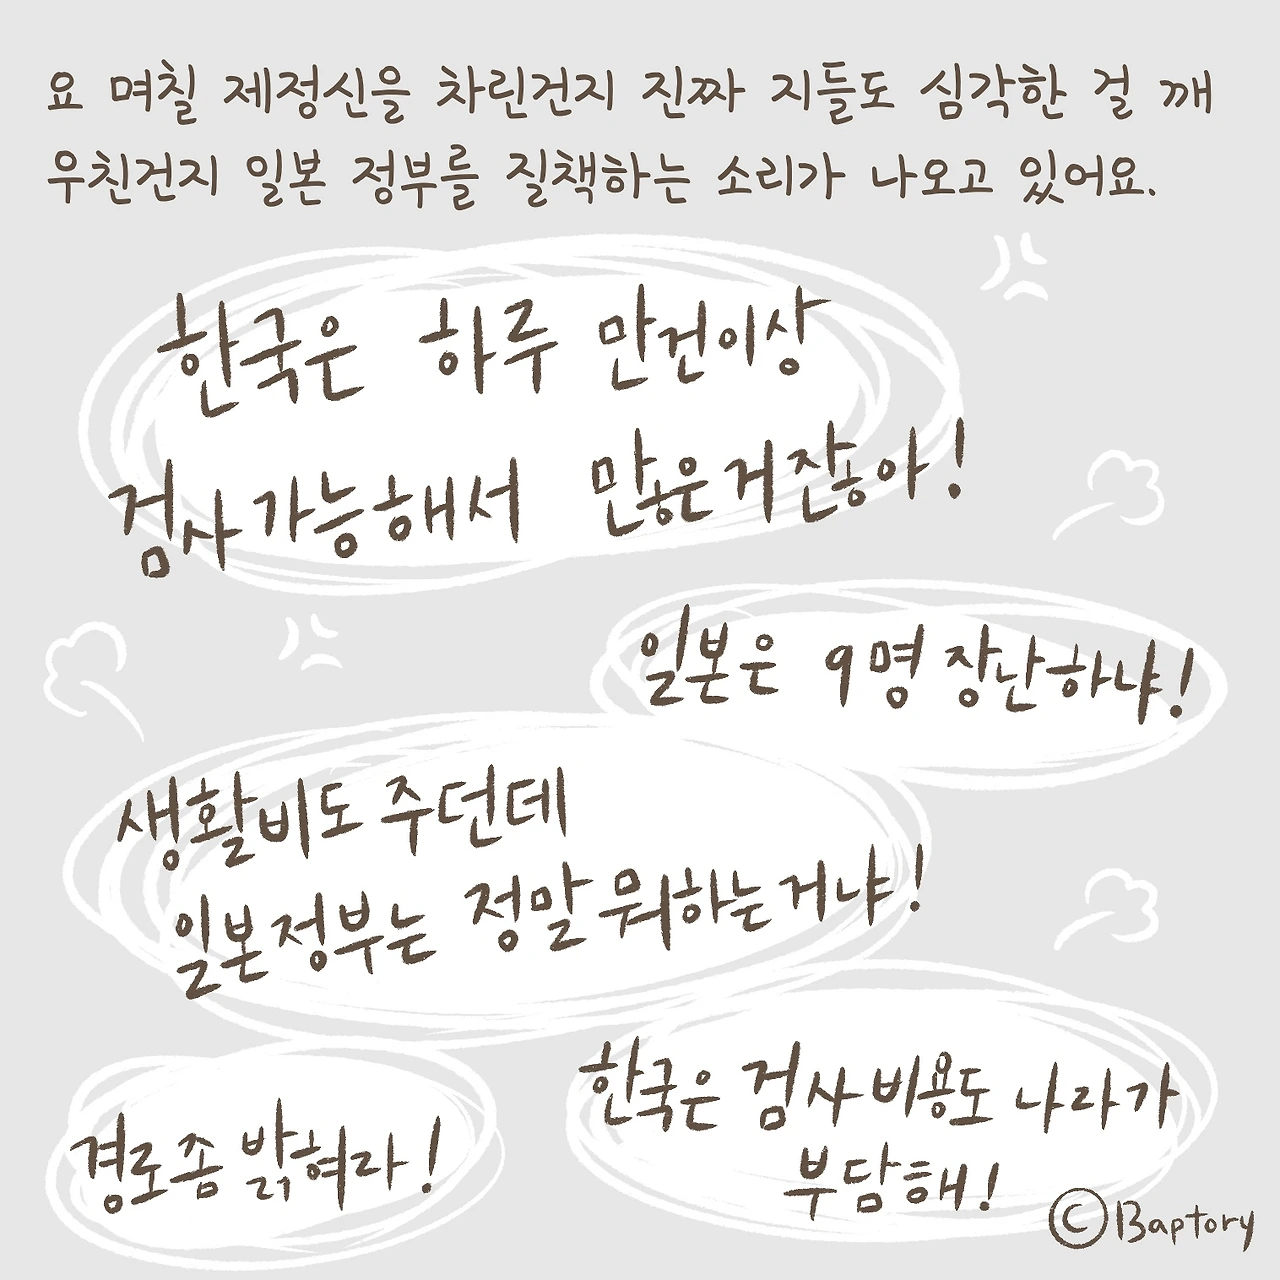 요 며칠 제정신을 차린건지 진짜 지들도 심각한 걸 깨
우친건지 일본 정부를 질책하는 소리가 나오고 있어요.
한국은 하루 만건이상
검사가능해서 많은거잖아!
일본은 9명 장난하냐!
생활비도 주던데
일본정부는 정말 뭐하는거냐!
경로좀 밝혀라!
한국은 검사비용도 나라가
부담해!
©Baptory